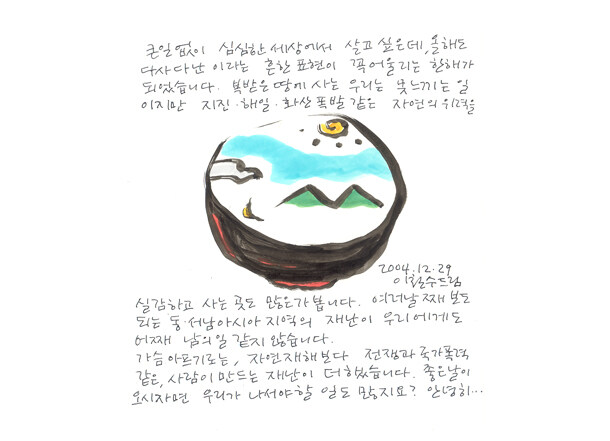 큰일 없이 심심한 세상에서 살고 싶은데, 올해도
다사다난 이라는 흔한 표현이 꼭 어울리는 한해가
되었습니다. 복받은 땅에 사는 우리는 못느끼는 일
이지만 지진·해일·화산폭발 같은 자연의 위력을
2004.12.29
이철수드림
실감하고 사는 곳도 많은가 봅니다. 여러날째 보도
되는 동·서남아시아 지역의 재난이 우리에게도
어째 남의 일 같지 않습니다.
가슴아프기로는, 자연재해보다 전쟁과 국가폭력
같은, 사람이 만드는 재난이 더 했습니다. 좋은날이
오시자면 우리가 나서야할 일도 많지요? 안녕히...